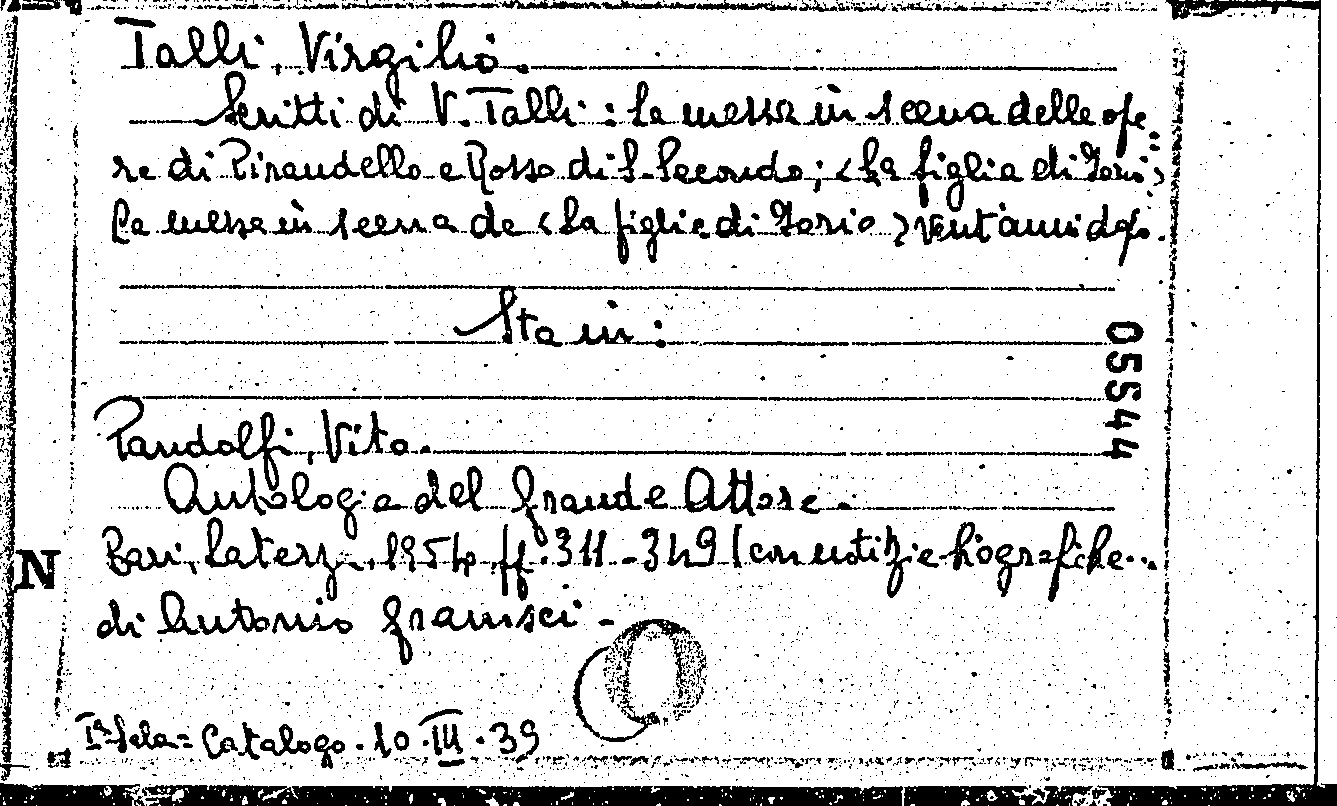 Talli, Virgilio.
Scritti di V. Talli : La messa in scena delle ope
re di Pirandello e Rosso di S. Secondo; <La figlia di Iorio>
La messa in scena de <La figlia di Iorio> vent'anni dopo.
Sta in :
05544
Pandolfi, Vito.
Antologia del grande Attore.
N
Bari, Laterza, 1954, pp. 311-349 (con notizie biografiche..
di Antonio Gramsci -
Iª Sala = Catalogo. 10.III.39